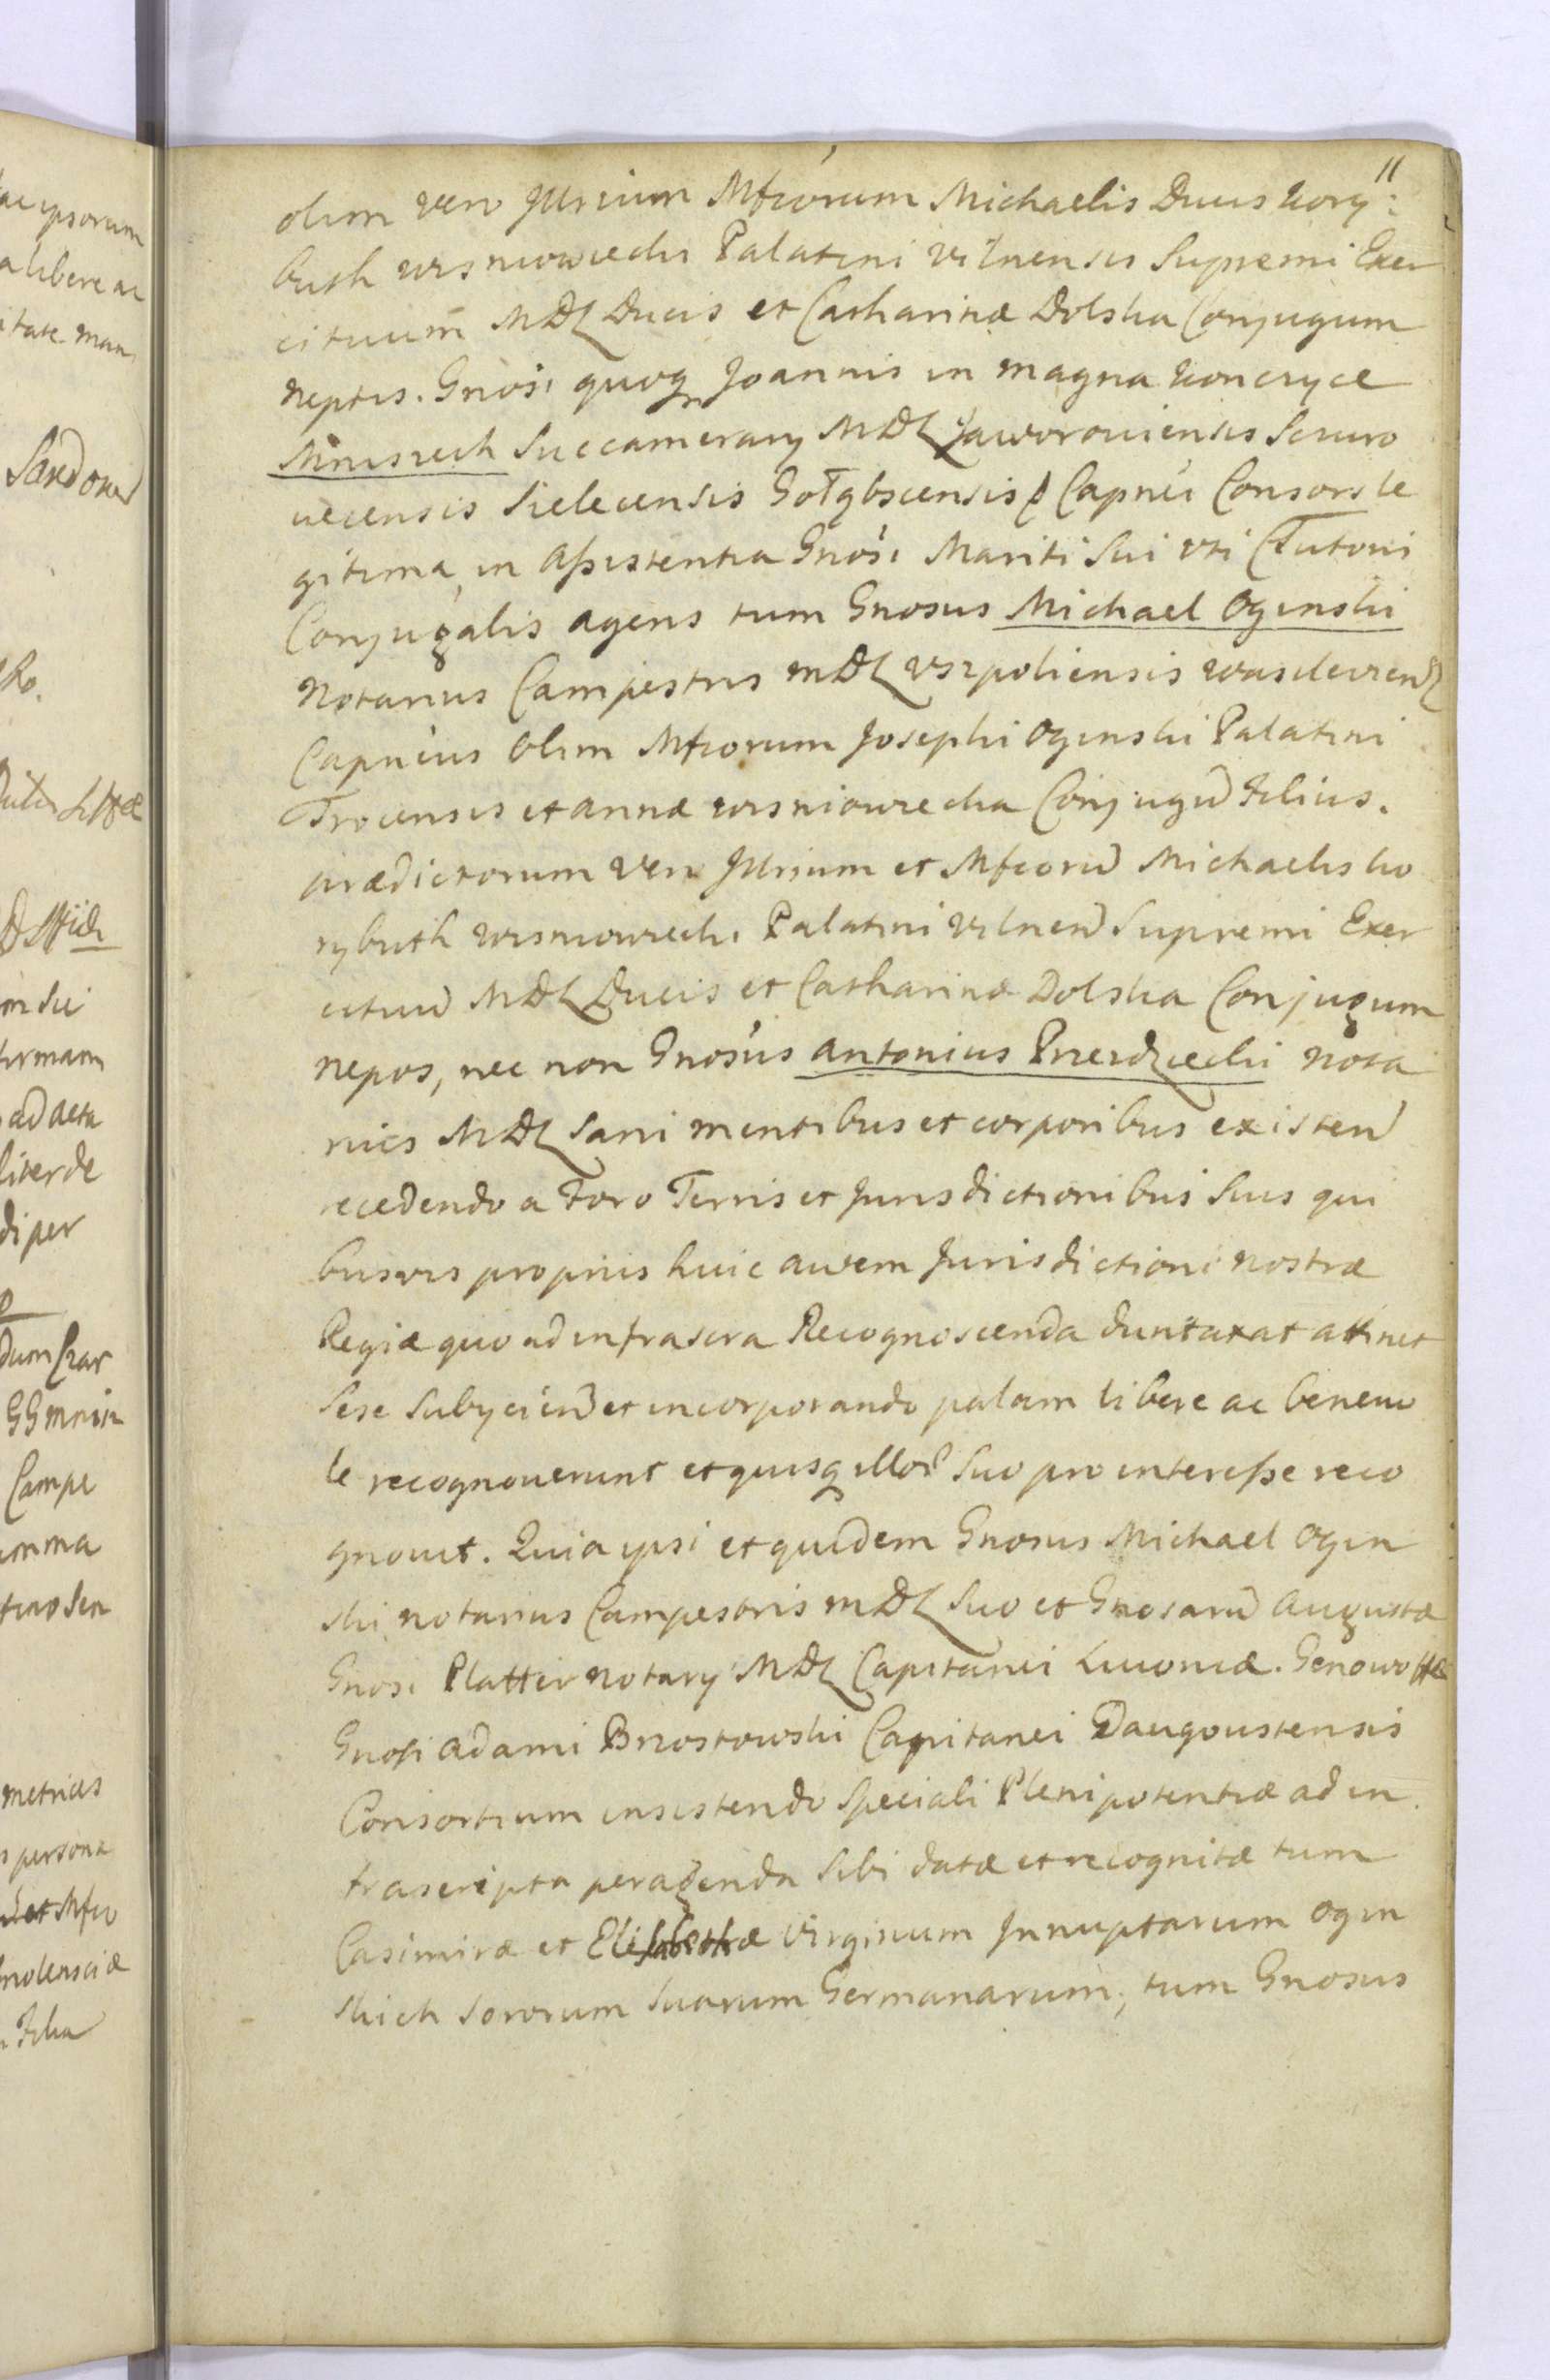 11
olim vero Jllrium Mfcorum Michaelis Ducis Kory:
buth Wisniowiecki Palatini Vilnensis Supremi Exer
cituum MDL Ducis et Catharinæ Dolska Conjugum
neptis. Gnosi quoq Joannis in magna Konczyce
Mniszech Succamerary MDL Jaworoviensis Szczuro
vecensis Sielecensis Gołębscensis Capnei Consors le
gitima, in assistentia Gnosi Mariti Sui vti Tutoris
Conjugalis agens tum Gnosus Michael Oginski
Notarius Campestris MDL Vszpoliensis Wasilevien
Capneus Olim Mfcorum Josephi Oginski Palatini
Trocensis et Annæ Wisniowiecka Conjugu Filius.
prædictorum vero Jllrium et Mfcoru Michaelis Ko
rybuth Wisniowiecki Palatini Vilnen Supremi Exer
cituu MDL Ducis et Catharinæ Dolska Conjugum
nepos, nec non Gnosus Antonius Przezdziecki Nota
rius MDL Sani mentibus et corporibus existen
recedendo a Foro Terris et Jurisdictionibus Suis qui
busvis proprijs huic autem Jurisdictioni nostræ
Regiæ quo ad infrascra Recognoscenda duntaxat attinet
Sese Subijcien et incorporando palam libere ac benevo
le recognoverunt et quisq illor Suo pro interesse reco
gnovit. Quia ipsi et quidem Gnosus Michael Ogin
ski notarius Campestris MDL Suo et Gnosaru Augustæ
Gnosi Platter Notary MDL Capitanei Livoniæ. Genoweffæ
Gnosi Adami Brzostowski Capitanei Daugoustensis
Consortium insistendo Speciali Plenipotentiæ ad in
frascripta peragenda Sibi datæ et recognitæ tum
Casimiræ et Elisabethæ Virginum Jnnuptarum Ogin
skich Sororum Suarum Germanarum, tum Gnosus
ac ipsorum
a libere ac
itate man
Ro.
m Sui
firmam
ad acta
liter de
di per
Campe
metrices
persona
Filia